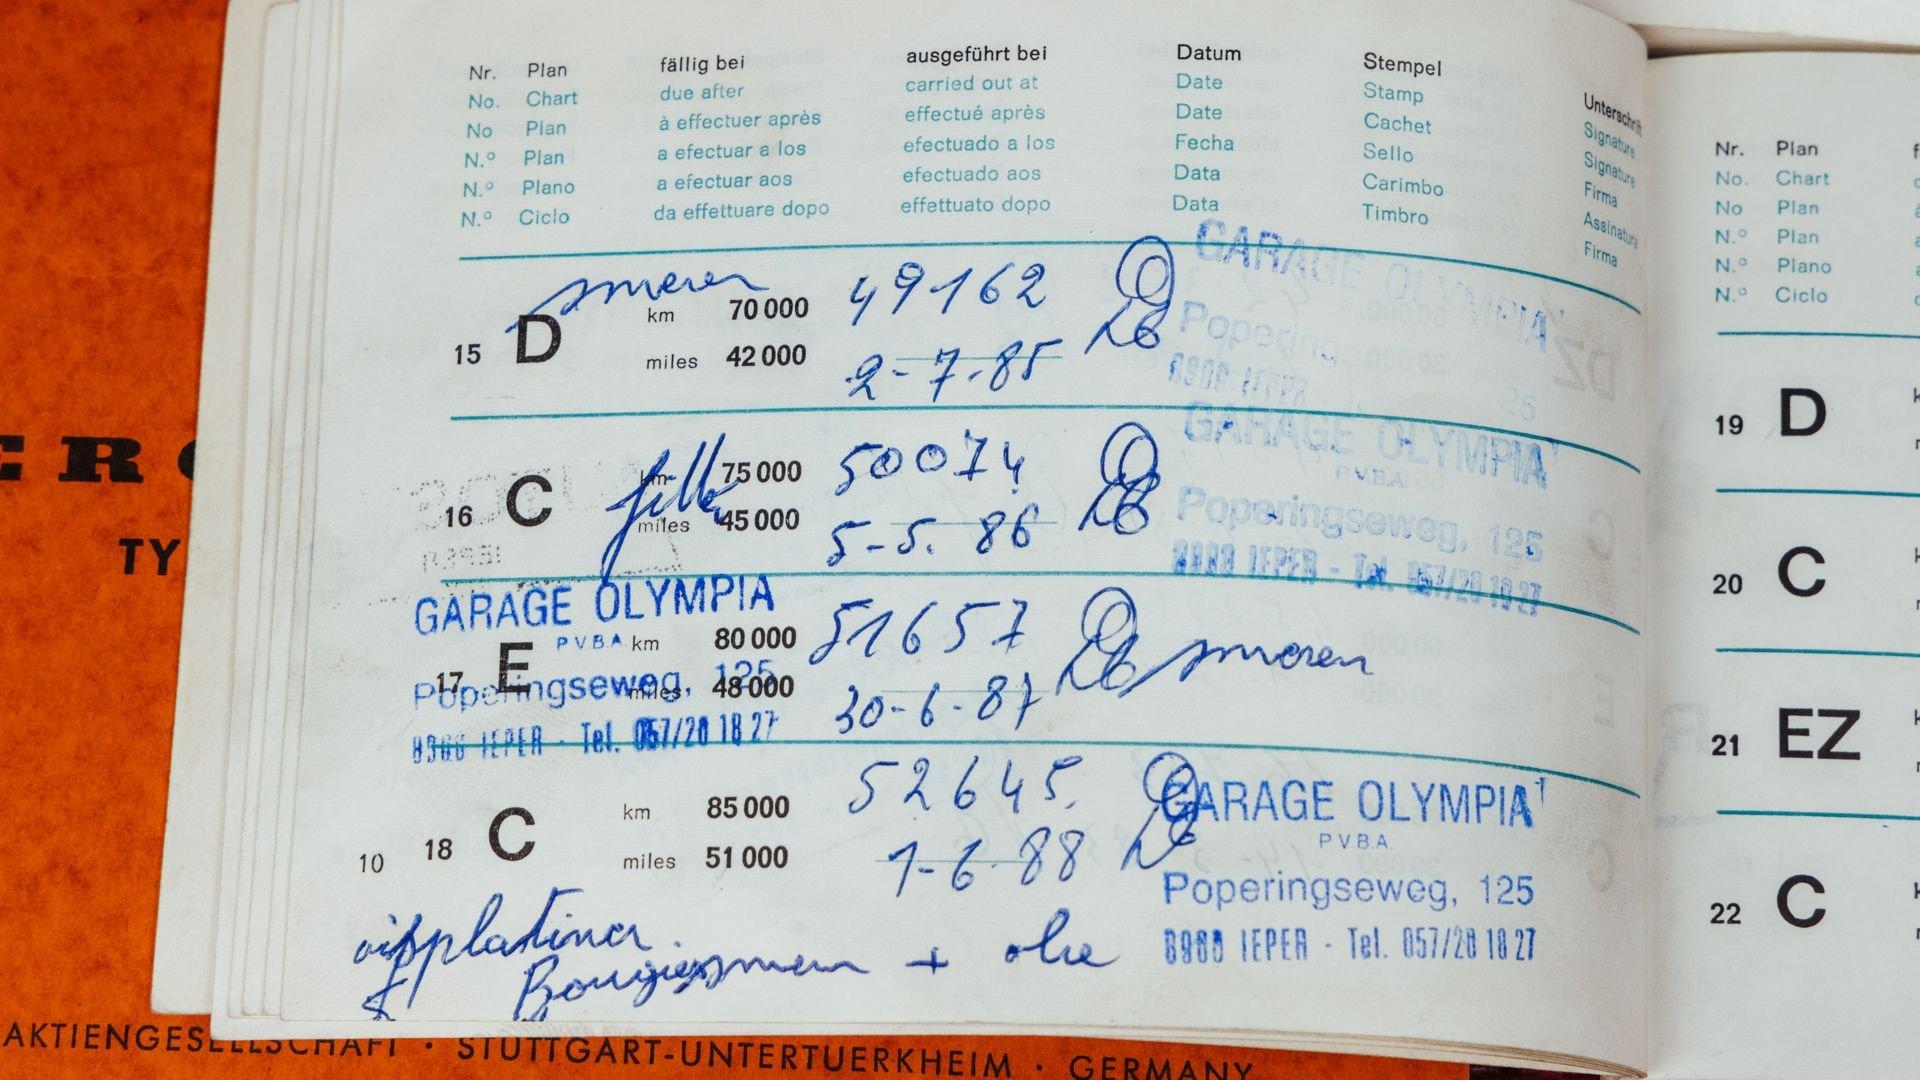 Nr. Plan fällig bei ausgeführt bei Datum Stempel Unterschrift
No. Chart due after carried out at Date Stamp Signature
No Plan à effectuer après effectué après Date Cachet Signature
N.º Plan a efectuar a los efectuado a los Fecha Sello Firma
N.º Plano a efectuar aos efectuado aos Data Carimbo Assinatura
N.º Ciclo da effettuare dopo effettuato dopo Data Timbro Firma
smeren
15 D km 70 000 49162
miles 42 000 2-7-85
GARAGE OLYMPIA
Poperingseweg, 125
IEPER
16 C km 75 000 50074
miles 45 000 5-5. 86
GARAGE OLYMPIA
P.V.B.A.
Poperingseweg, 125
IEPER - Tel. 057/20 18 27
17 E km 80 000 51657 smeren
miles 48 000 30-6-87
GARAGE OLYMPIA
P.V.B.A.
Poperingseweg, 125
IEPER - Tel. 057/20 18 27
18 C km 85 000 52645.
miles 51 000 1-6-88
10
GARAGE OLYMPIA
P.V.B.A.
Poperingseweg, 125
IEPER - Tel. 057/20 18 27
+ olie
Nr. Plan
No. Chart
No Plan
N.º Plan
N.º Plano
N.º Ciclo
19 D
20 C
21 EZ
22 C
TY
AKTIENGESELLSCHAFT · STUTTGART-UNTERTUERKHEIM · GERMANY